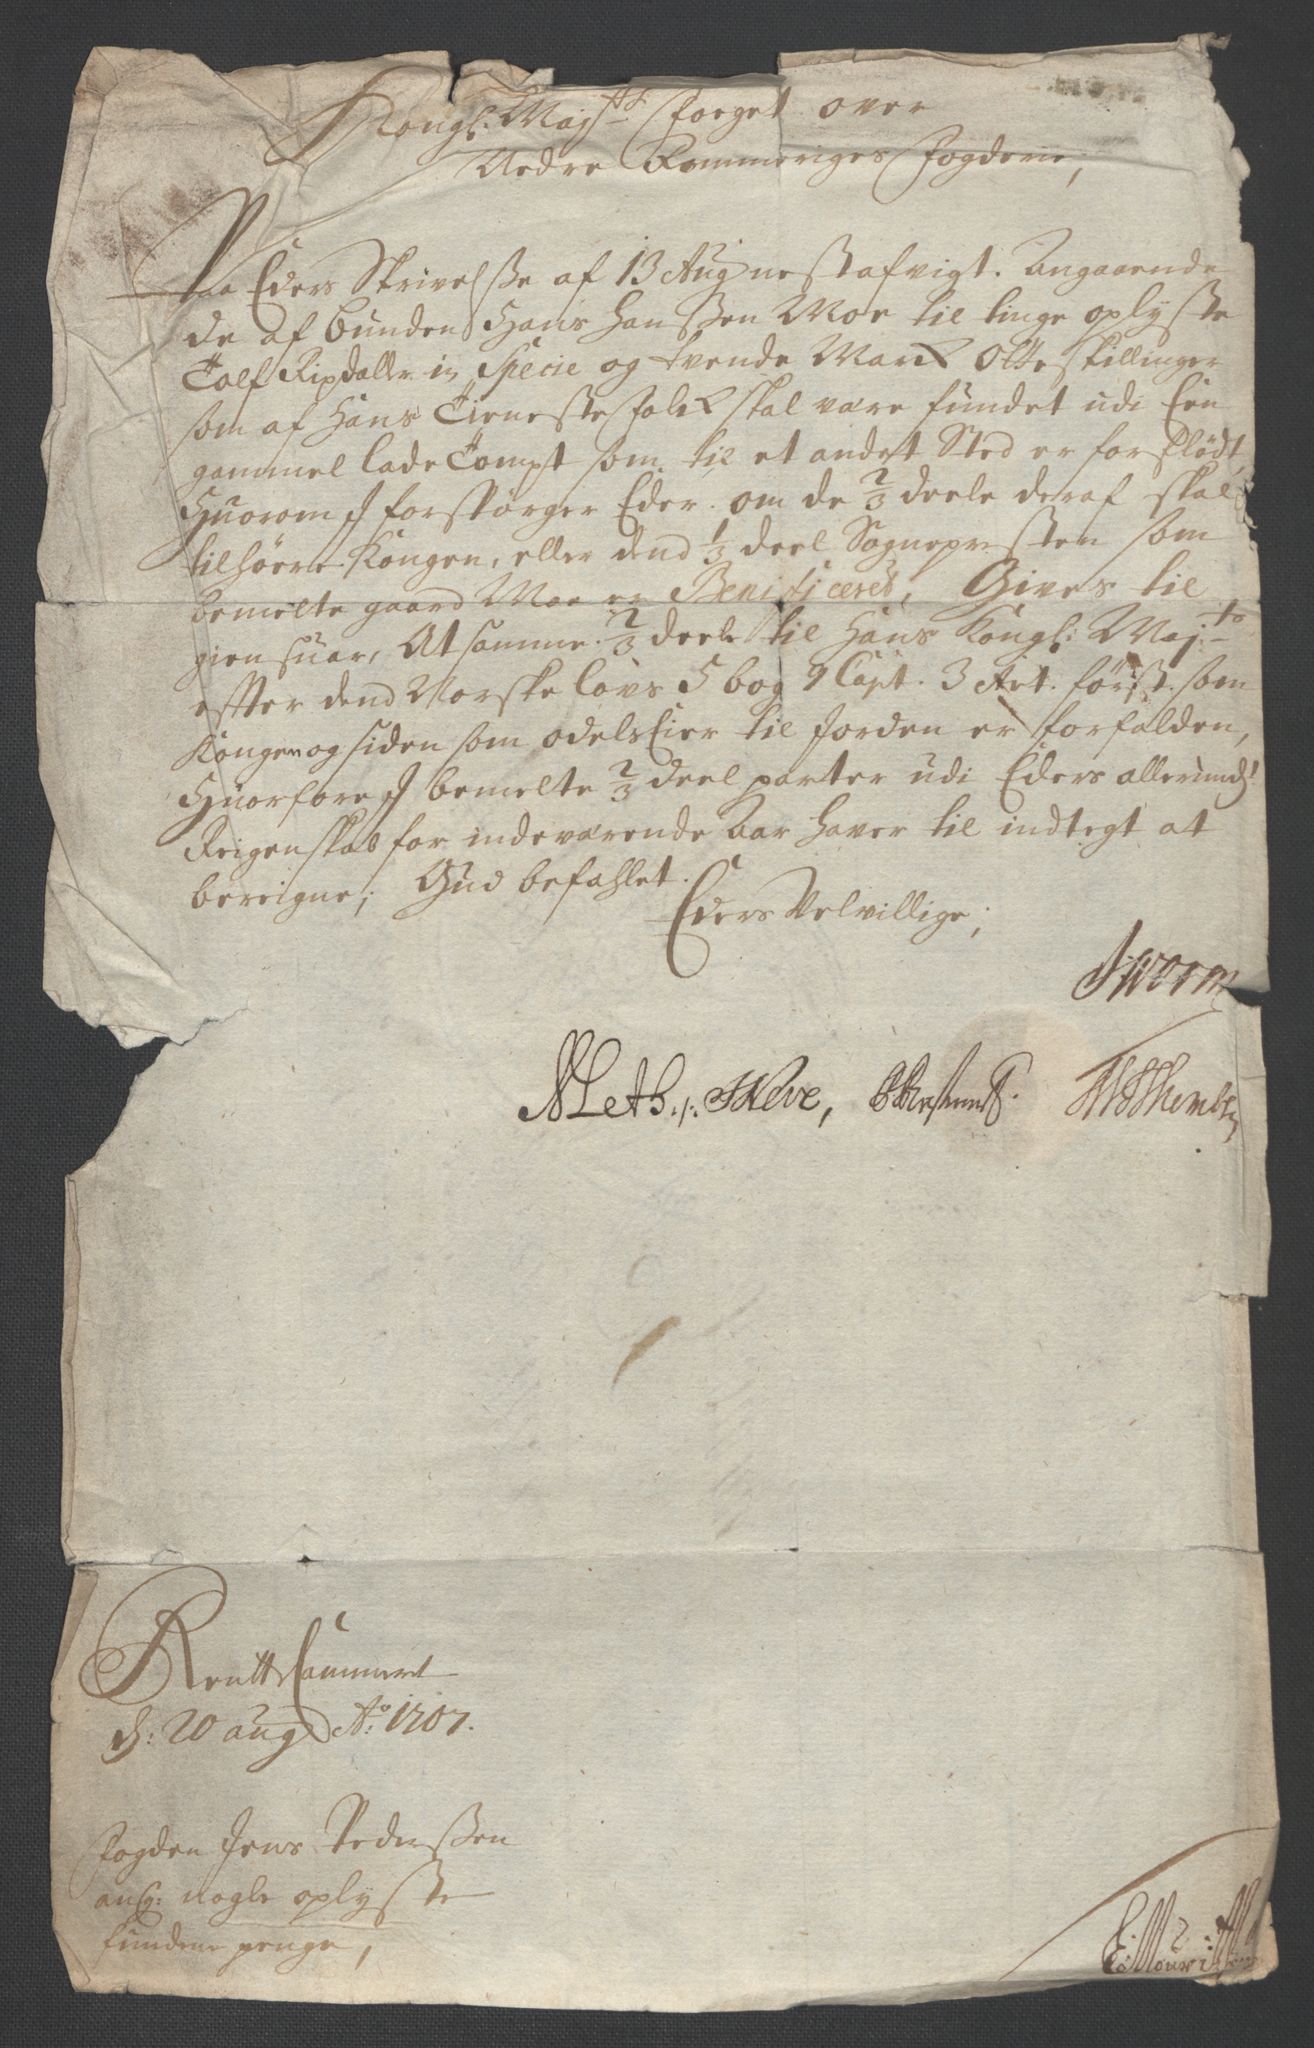 Kongl: Maj:ts Foeget over
Nedre Rommeriges Fogderie,
Paa Eders Skrivelsse af 13 Aug nest afvigt. Angaaende
de af bunden Hans Hanssen Moe til tinge oplyste
Tolf Rixdaller in Specie og tvende Marck Otte skillinger
som af Hans Tieneste folck skal være fundet udi Een
gammel lade Tompt som til et andet Sted er forflødt,
Huorom I forspørger Eder om de 2/3 deele deraf skal
tilhøere Kongen, eller dend 1/3 deel Sognepresten som
bemelte gaard Moe er Benificeret, Gives til
giensuar, At samme 2/3 deele til Hans Kongl: Maj:t
efter dend Norske lovs 5 bog 9 Capt. 3 Art. først som
Kongen og siden som odels Eier til Jorden er forfalden,
Huorfore I bemelte 2/3 deel parter udi Eders allerunds
Reigenskab for indeværende Aar haver til indtegt at
bereigne; Gud befahlet.
Eders Velvillige;
Worm
Meth:
Rentte Cammeret
d: 20 aug Ao 1707.
Fogden Jens Pederssen
ang: nogle oplyste
fundene penge,